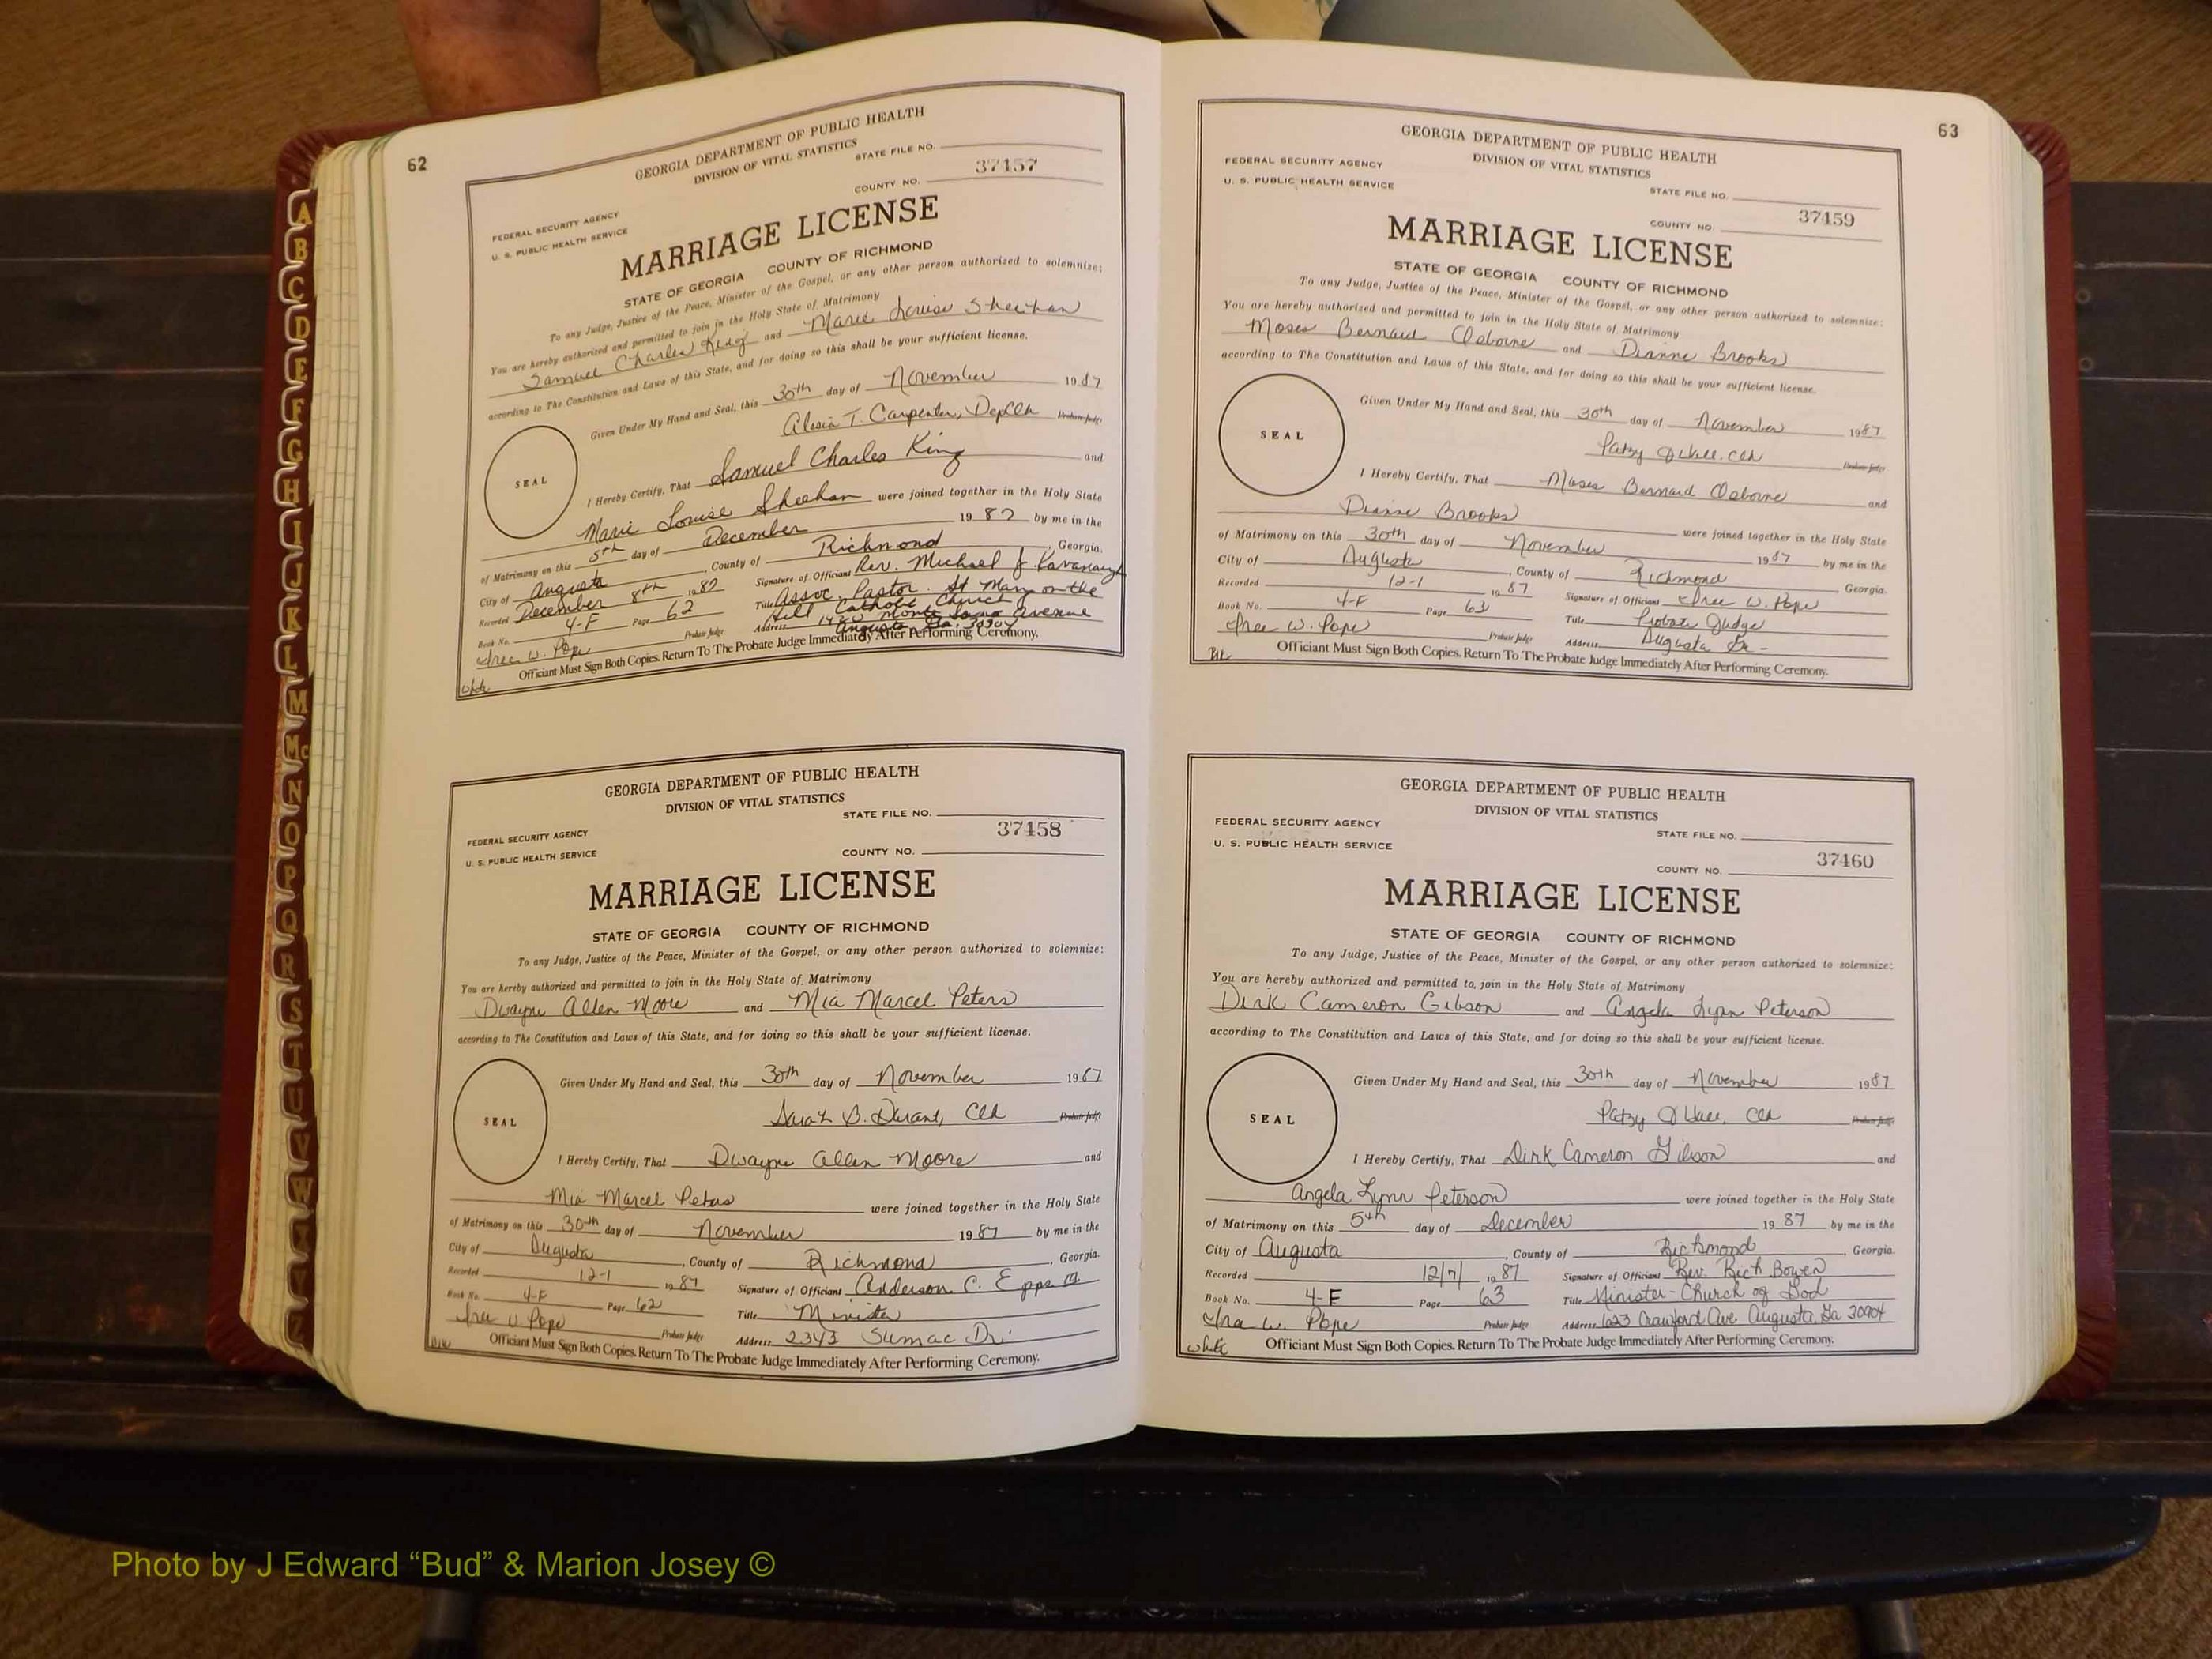 62
GEORGIA DEPARTMENT OF PUBLIC HEALTH
DIVISION OF VITAL STATISTICS
STATE FILE NO.
37457
COUNTY NO.
FEDERAL SECURITY AGENCY
U. S. PUBLIC HEALTH SERVICE
MARRIAGE LICENSE
STATE OF GEORGIA COUNTY OF RICHMOND
To any Judge, Justice of the Peace, Minister of the Gospel, or any other person authorized to solemnize:
You are hereby authorized and permitted to join in the Holy State of Matrimony
Samuel Charles King and Marie Louise Sheehan
according to The Constitution and Laws of this State, and for doing so this shall be your sufficient license.
Given Under My Hand and Seal, this 30th day of November 1987
Alesia T. Carpenter, Probate Judge
SEAL
I Hereby Certify, That Samuel Charles King and
Marie Louise Sheehan were joined together in the Holy State
of Matrimony on this 5th day of December 1987 by me in the
City of Augusta, County of Richmond, Georgia.
Recorded December 8th 1987 Signature of Officiant Rev. Michael J. Kavanaugh
Book No. 4-F Page 62 Title Assoc. Pastor St Mary on the
Hill Catholic Church
Address Monte Sano Avenue
Augusta, Ga. 30904
W. Pope Probate Judge
Officiant Must Sign Both Copies. Return To The Probate Judge Immediately After Performing Ceremony.
White
GEORGIA DEPARTMENT OF PUBLIC HEALTH
DIVISION OF VITAL STATISTICS
STATE FILE NO.
37458
FEDERAL SECURITY AGENCY
U. S. PUBLIC HEALTH SERVICE
COUNTY NO.
MARRIAGE LICENSE
STATE OF GEORGIA COUNTY OF RICHMOND
To any Judge, Justice of the Peace, Minister of the Gospel, or any other person authorized to solemnize:
You are hereby authorized and permitted to join in the Holy State of Matrimony
Dwayne Allen Moore and Mia Marcel Peters
according to The Constitution and Laws of this State, and for doing so this shall be your sufficient license.
Given Under My Hand and Seal, this 30th day of November 1987
Sarah B. Durant, Clk Probate Judge
SEAL
I Hereby Certify, That Dwayne Allen Moore and
Mia Marcel Peters were joined together in the Holy State
of Matrimony on this 30th day of November 1987 by me in the
City of Augusta, County of Richmond, Georgia.
Recorded 12-1 1987 Signature of Officiant Anderson C. Epps III
Book No. 4-F Page 62 Title Minister
W Pope Probate Judge Address 2343 Sumac Dr.
Officiant Must Sign Both Copies. Return To The Probate Judge Immediately After Performing Ceremony.
63
GEORGIA DEPARTMENT OF PUBLIC HEALTH
DIVISION OF VITAL STATISTICS
FEDERAL SECURITY AGENCY
U. S. PUBLIC HEALTH SERVICE
STATE FILE NO.
37459
COUNTY NO.
MARRIAGE LICENSE
STATE OF GEORGIA COUNTY OF RICHMOND
To any Judge, Justice of the Peace, Minister of the Gospel, or any other person authorized to solemnize:
You are hereby authorized and permitted to join in the Holy State of Matrimony
Moses Bernard Osborne and Dianne Brooks
according to The Constitution and Laws of this State, and for doing so this shall be your sufficient license.
Given Under My Hand and Seal, this 30th day of November 1987
Patsy Clk Probate Judge
SEAL
I Hereby Certify, That Moses Bernard Osborne and
Dianne Brooks were joined together in the Holy State
of Matrimony on this 30th day of November 1987 by me in the
City of Augusta, County of Richmond Georgia.
Recorded 12-1 1987 Signature of Officiant W. Pope
Book No. 4-F Page 63 Title Probate Judge
W. Pope Probate Judge Address Augusta Ga -
Officiant Must Sign Both Copies. Return To The Probate Judge Immediately After Performing Ceremony.
GEORGIA DEPARTMENT OF PUBLIC HEALTH
DIVISION OF VITAL STATISTICS
FEDERAL SECURITY AGENCY
U. S. PUBLIC HEALTH SERVICE
STATE FILE NO.
37460
COUNTY NO.
MARRIAGE LICENSE
STATE OF GEORGIA COUNTY OF RICHMOND
To any Judge, Justice of the Peace, Minister of the Gospel, or any other person authorized to solemnize:
You are hereby authorized and permitted to join in the Holy State of Matrimony
Dirk Cameron Gibson and Angela Lynn Peterson
according to The Constitution and Laws of this State, and for doing so this shall be your sufficient license.
Given Under My Hand and Seal, this 30th day of November 1987
Patsy Clk Probate Judge
SEAL
I Hereby Certify, That Dirk Cameron Gibson and
Angela Lynn Peterson were joined together in the Holy State
of Matrimony on this 5th day of December 1987 by me in the
City of Augusta, County of Richmond, Georgia.
Recorded 12/7/ 1987 Signature of Officiant Rev. Rich Bowen
Book No. 4-F Page 63 Title Minister - Church of God
W. Pope Probate Judge Address 1023 Crawford Ave Augusta, Ga 30904
White Officiant Must Sign Both Copies. Return To The Probate Judge Immediately After Performing Ceremony.
A
B
C
D
E
F
G
H
I
J
K
L
M
Mc
N
O
P
Q
R
S
T
U
V
W
X
Y
Z
Photo by J Edward “Bud” & Marion Josey ©